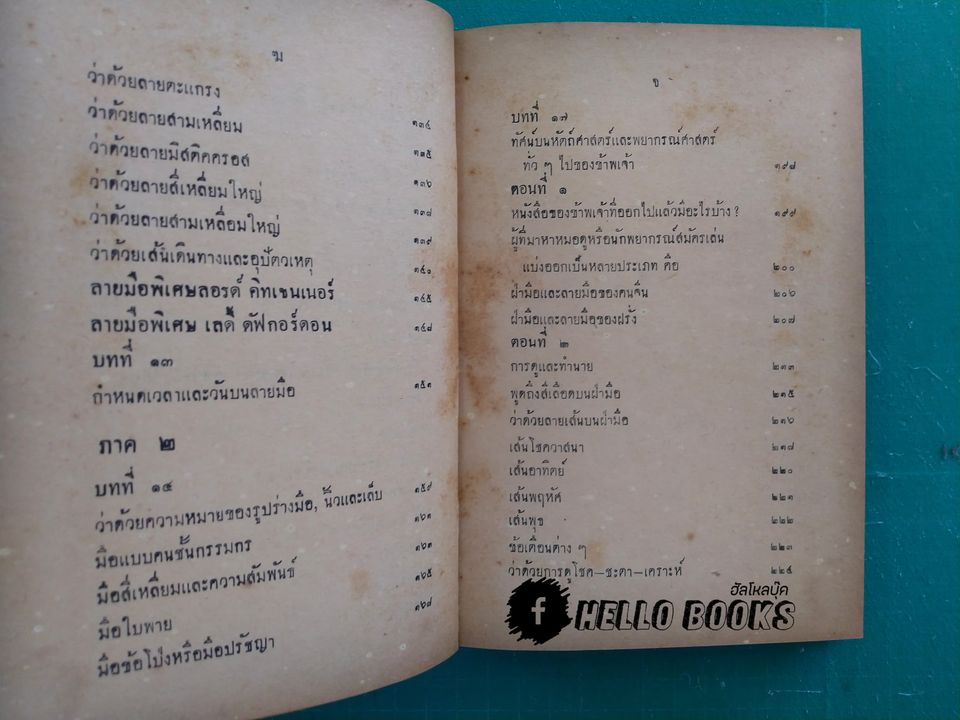 ฆ
ว่าด้วยลายตะแกรง
ว่าด้วยลายสามเหลี่ยม ๑๓๔
ว่าด้วยลายมีสติคครอส ๑๓๕
ว่าด้วยลายสี่เหลี่ยมใหญ่ ๑๓๖
ว่าด้วยลายสามเหลี่ยมใหญ่ ๑๓๘
ว่าด้วยเส้นเดินทางและอุปัตวเหตุ ๑๓๙
ลายมือพิเศษลอรด์ คิทเชนเนอร์ ๑๔๑
ลายมือพิเศษ เลดี้ ดัฟกอร์ดอน ๑๔๕
บทที่ ๑๓ ๑๔๘
กำหนดเวลาและวันบนลายมือ ๑๕๓
ภาค ๒
บทที่ ๑๔
ว่าด้วยความหมายของรูปร่างมือ, นิ้วและเล็บ ๑๕๙
มือแบบคนชั้นกรรมกร ๑๖๑
มือสี่เหลี่ยมและความสัมพันธ์ ๑๖๓
มือใบพาย ๑๖๕
มือข้อโป่งหรือมือปรัชญา ๑๖๘
ง
บทที่ ๑๗
ทัศน์บนหัตถ์ศาสตร์และพยากรณ์ศาสตร์
ทั่ว ๆ ไปของข้าพเจ้า ๑๙๘
ตอนที่ ๑
หนังสือของข้าพเจ้าที่ออกไปแล้วมีอะไรบ้าง? ๑๙๙
ผู้ที่มาหาหมอดูหรือนักพยากรณ์สมัครเล่น
แบ่งออกเป็นหลายประเภท คือ ๒๐๐
ฝ่ามือและลายมือของคนจีน ๒๐๖
ฝ่ามือและลายมือของฝรั่ง ๒๐๗
ตอนที่ ๒
การดูและทำนาย ๒๑๓
พูดถึงสีเลือดบนฝ่ามือ ๒๑๕
ว่าด้วยลายเส้นบนฝ่ามือ ๒๑๖
เส้นโชควาสนา ๒๑๗
เส้นอาทิตย์ ๒๒๐
เส้นพฤหัศ ๒๒๑
เส้นพุธ ๒๒๒
ข้อเตือนต่าง ๆ ๒๒๓
ว่าด้วยการดูโชค-ชะตา-เคราะห์ ๒๒๔
ฮัลโหลบุ๊ค
f HELLO BOOKS